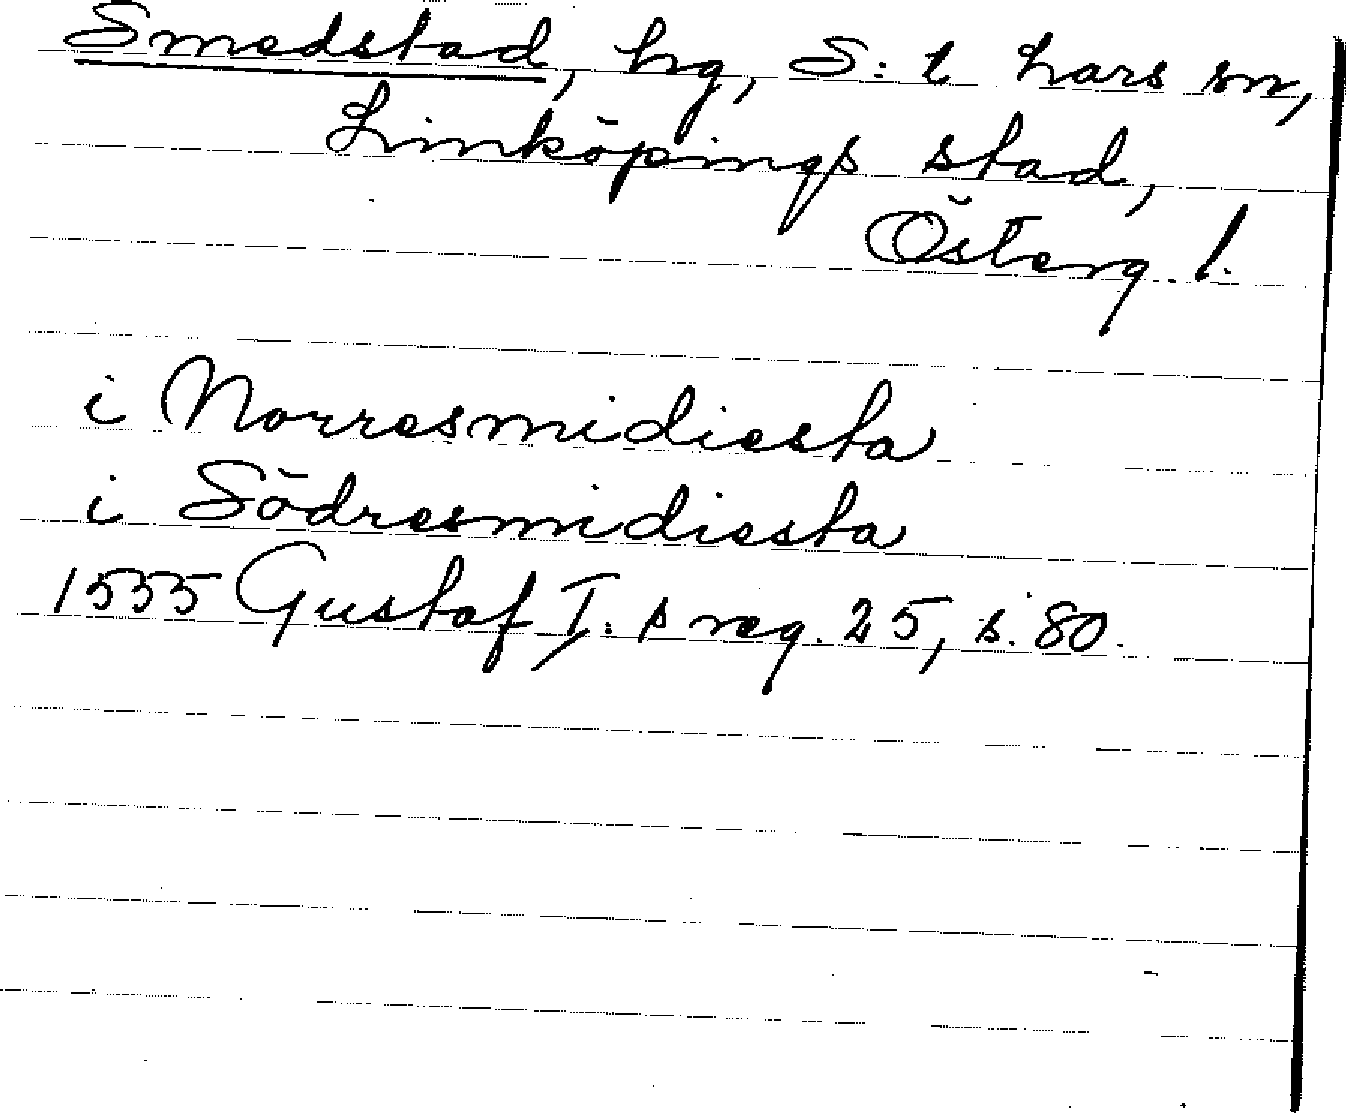 Smedstad, hg, S:t Lars sn,
Linköpings stad,
Österg. l.
i Norresmidiesta
i Södresmidiesta
1535 Gustaf I:s reg. 25, s. 80.